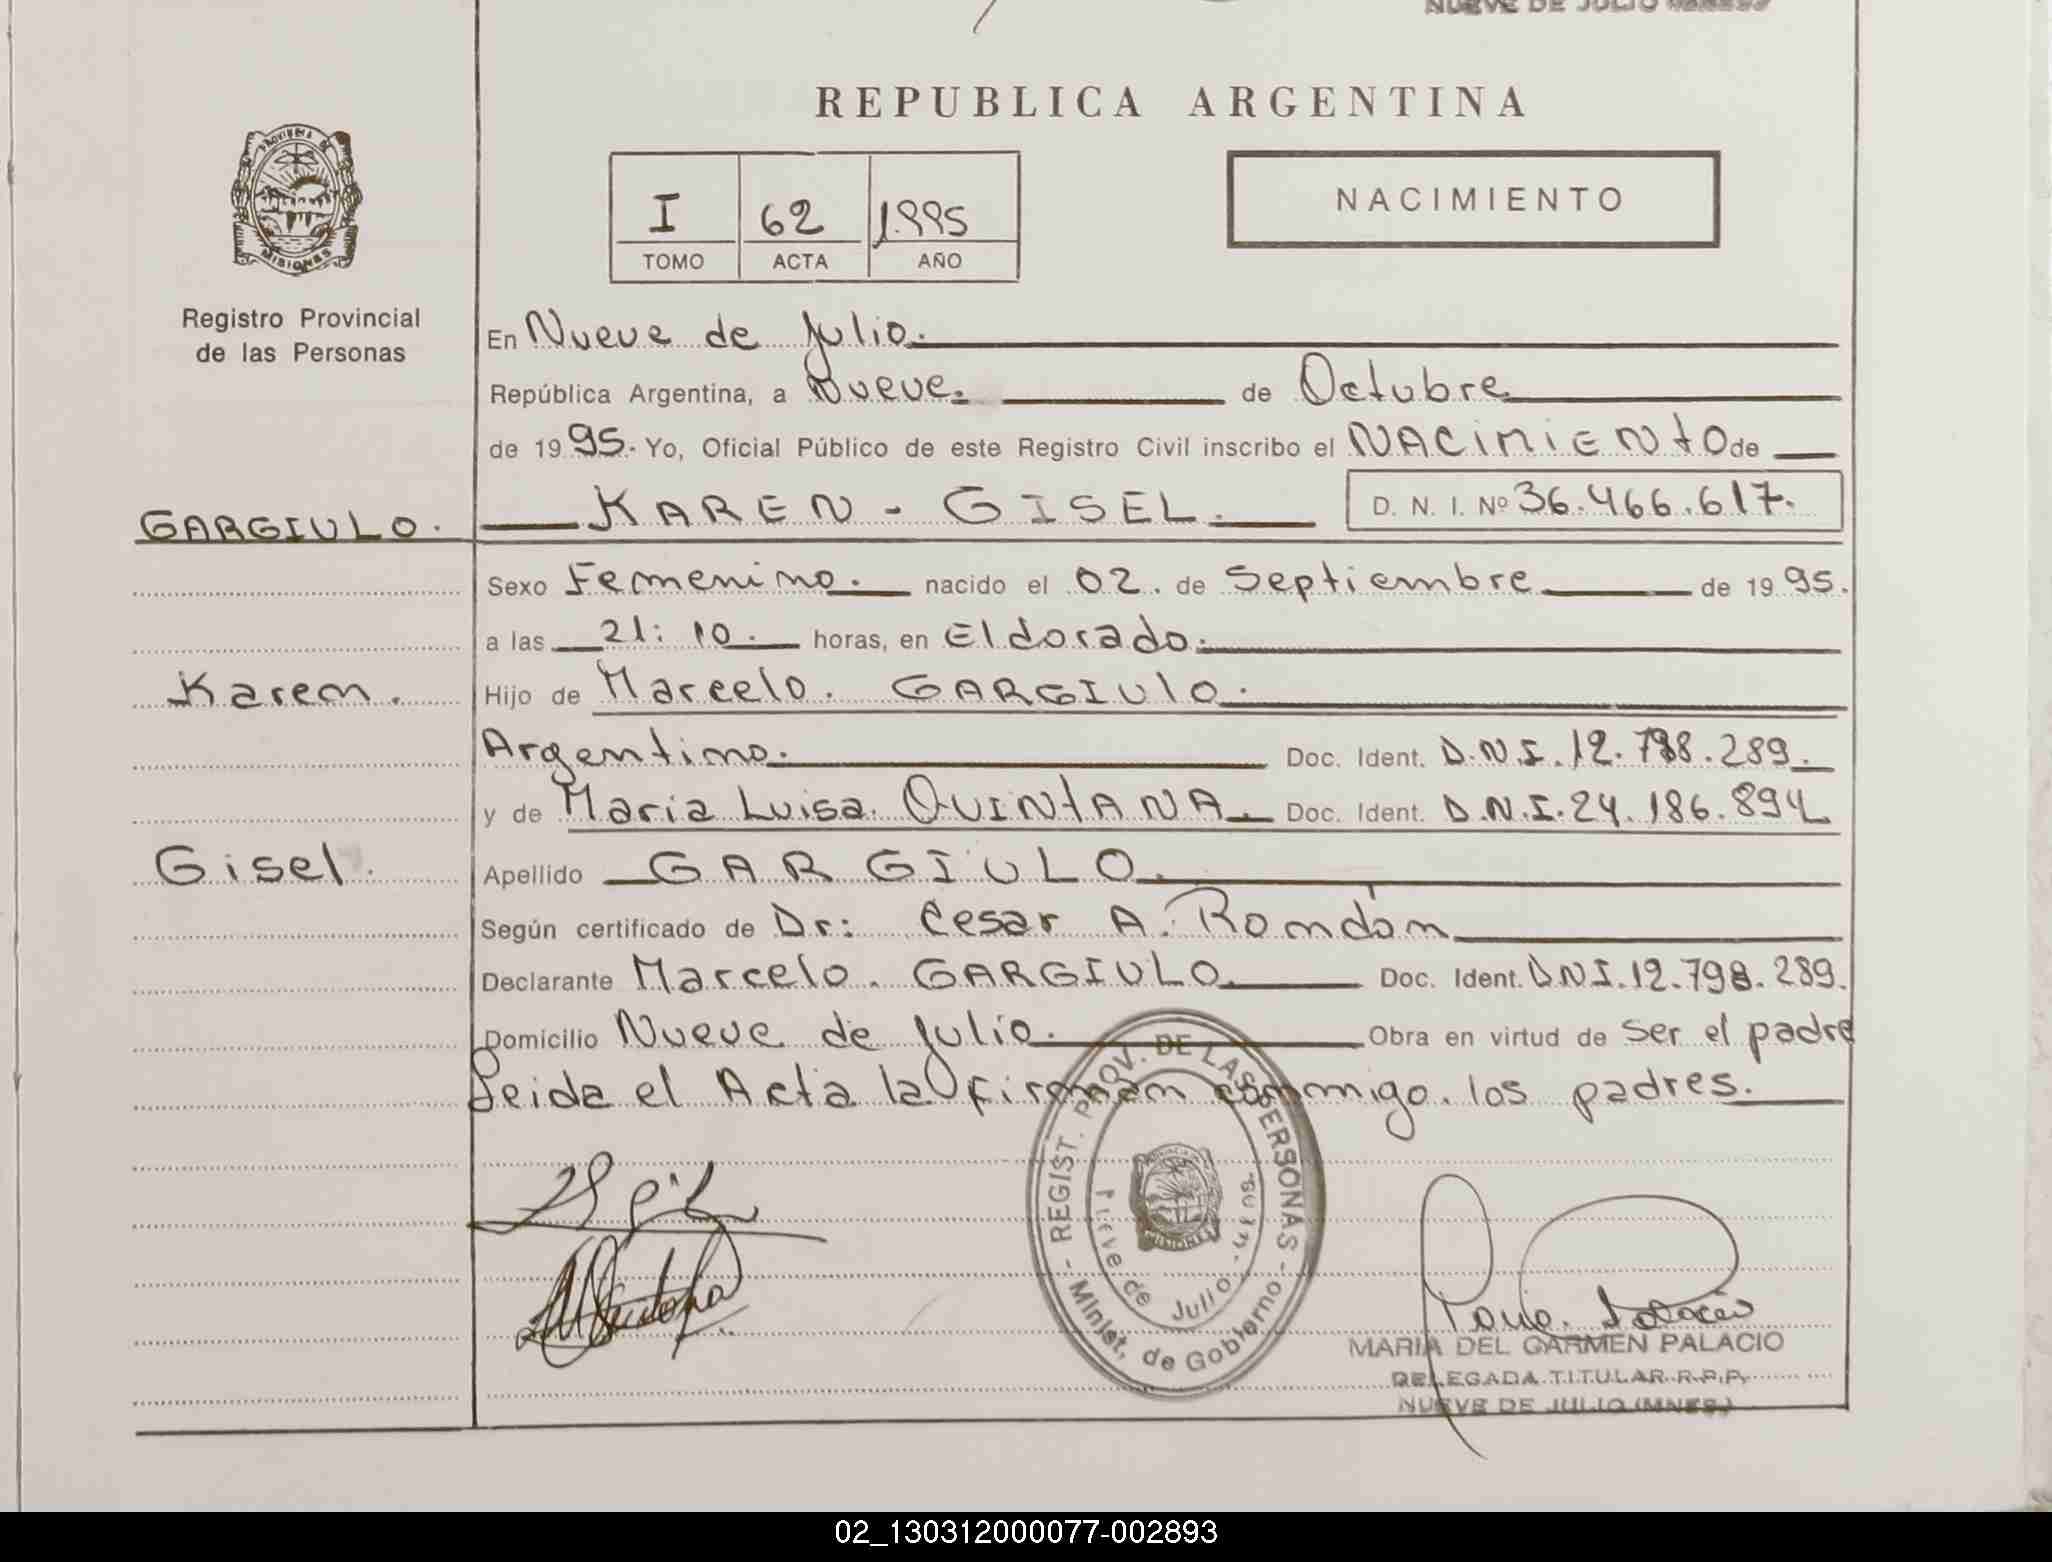 NUEVE DE JULIO (MNES)
REPUBLICA ARGENTINA
PROVINCIA DE
MISIONES
Registro Provincial
de las Personas
I 62 1.995
TOMO ACTA AÑO
NACIMIENTO
En Nueve de Julio.
República Argentina, a Nueve. de Octubre
de 19 95. Yo, Oficial Público de este Registro Civil inscribo el NACIMIENTO de
GARGIULO. KAREN - GISEL. D. N. I. Nº 36.466.617.
Sexo Femenino. nacido el 02. de Septiembre de 19 95.
a las 21: 10. horas, en Eldorado.
Karen. Hijo de Marcelo. GARGIULO.
Argentino. Doc. Ident. D.N.I. 12.798.289.
y de Maria Luisa. QUINTANA. Doc. Ident. D.N.I. 24.186.894
Gisel. Apellido GARGIULO.
Según certificado de Dr: Cesar A. Román
Declarante Marcelo. GARGIULO Doc. Ident. DNI.12.798.289.
Domicilio Nueve de Julio. Obra en virtud de ser el padre
Leida el Acta la firman conmigo. los padres.
- REGIST. PROV. DE LAS PERSONAS -
Minist. de Gobierno
Nueve de Julio - Mnes.
MISIONES
MARIA DEL CARMEN PALACIO
DELEGADA TITULAR R.P.P.
NUEVE DE JULIO (MNES.)
02_130312000077-002893